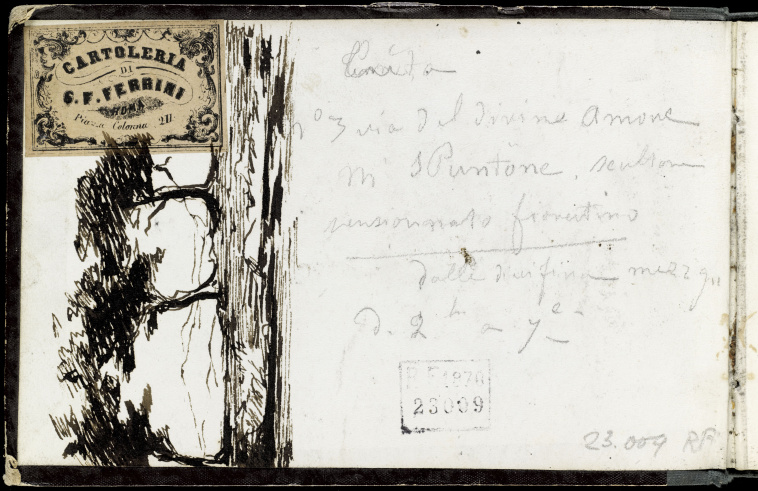 CARTOLERIA
DI
G. F. FERRINI
ROMA
Piazza Colonna 211
n° 3 via del divino Amore
S Puntone, scultore
pensionnato fiorentino
dalle dieci fino mezz
d. 2 h a 7
R.F. 1870
23009
23.009 RF